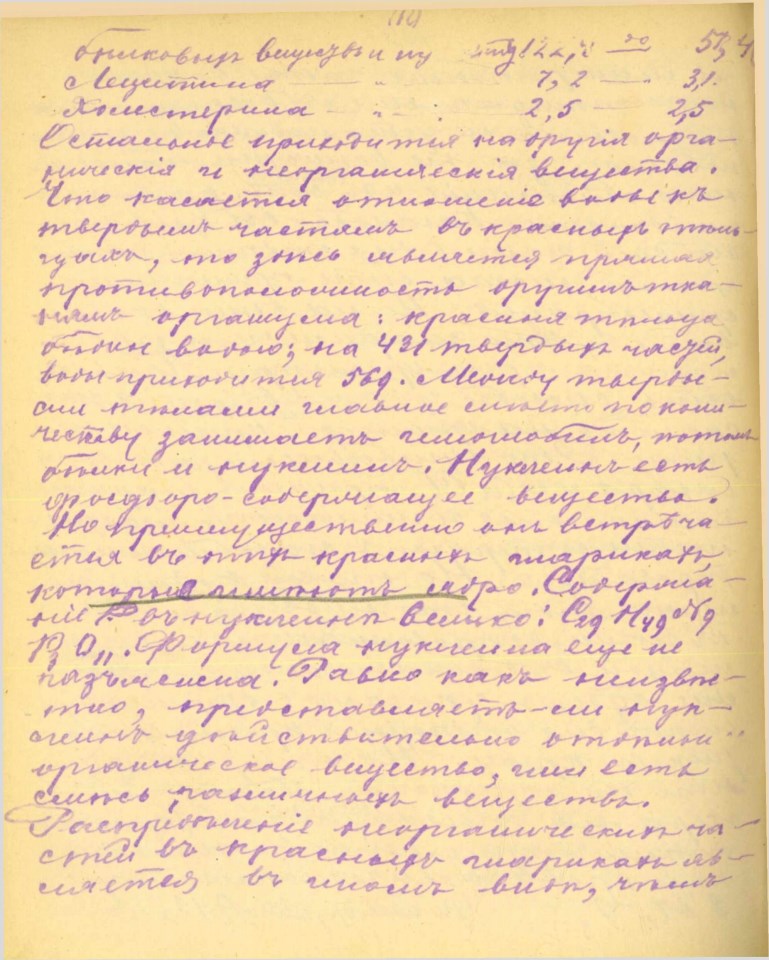 (10)
бѣлковыхъ веществъ 122, 51,
Лецитина — „ 7,2 — 3,1.
Холестерина — „ — 2,5 — 2,5
Остальное приходится на другія орга-
ническія и неорганическія вещества.
Что касается отношенія воды къ
твердымъ частямъ въ красныхъ тѣль-
цахъ, то здѣсь является прямая
противоположность другимъ тка-
нямъ организма: красныя тѣльца
бѣдны водою; на 431 твердыхъ частей,
воды приходится 569. Между тверды-
ми тѣлами главное мѣсто по коли-
честву занимаетъ гемоглобинъ, потомъ
бѣлки и нуклеинъ. Нуклеинъ есть
фосфоро-содержащее вещество.
Но преимущественно онъ встрѣча-
ется въ тѣхъ красныхъ шарикахъ,
которые имѣютъ ядро. Содержа-
ніе P въ нуклеинѣ велико: C29 H49 N9
P3 O11. Формула нуклеина еще не
разъяснена. Равно какъ неизвѣ-
стно, представляетъ-ли нук-
леинъ дѣйствительно отдѣльн
органическое вещество, или есть
смѣсь различныхъ веществъ.
Распредѣленіе неорганическихъ ча-
стей въ красныхъ шарикахъ яв-
ляется въ иномъ видѣ, чѣмъ